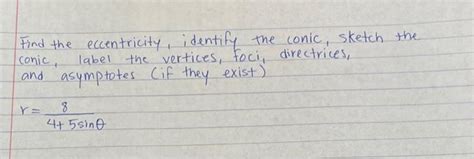 Find the eccentricity, identify the conic, sketch the
conic, label the vertices, foci, directrices,
and asymptotes (if they exist)
r = 8
4 + 5sinθ